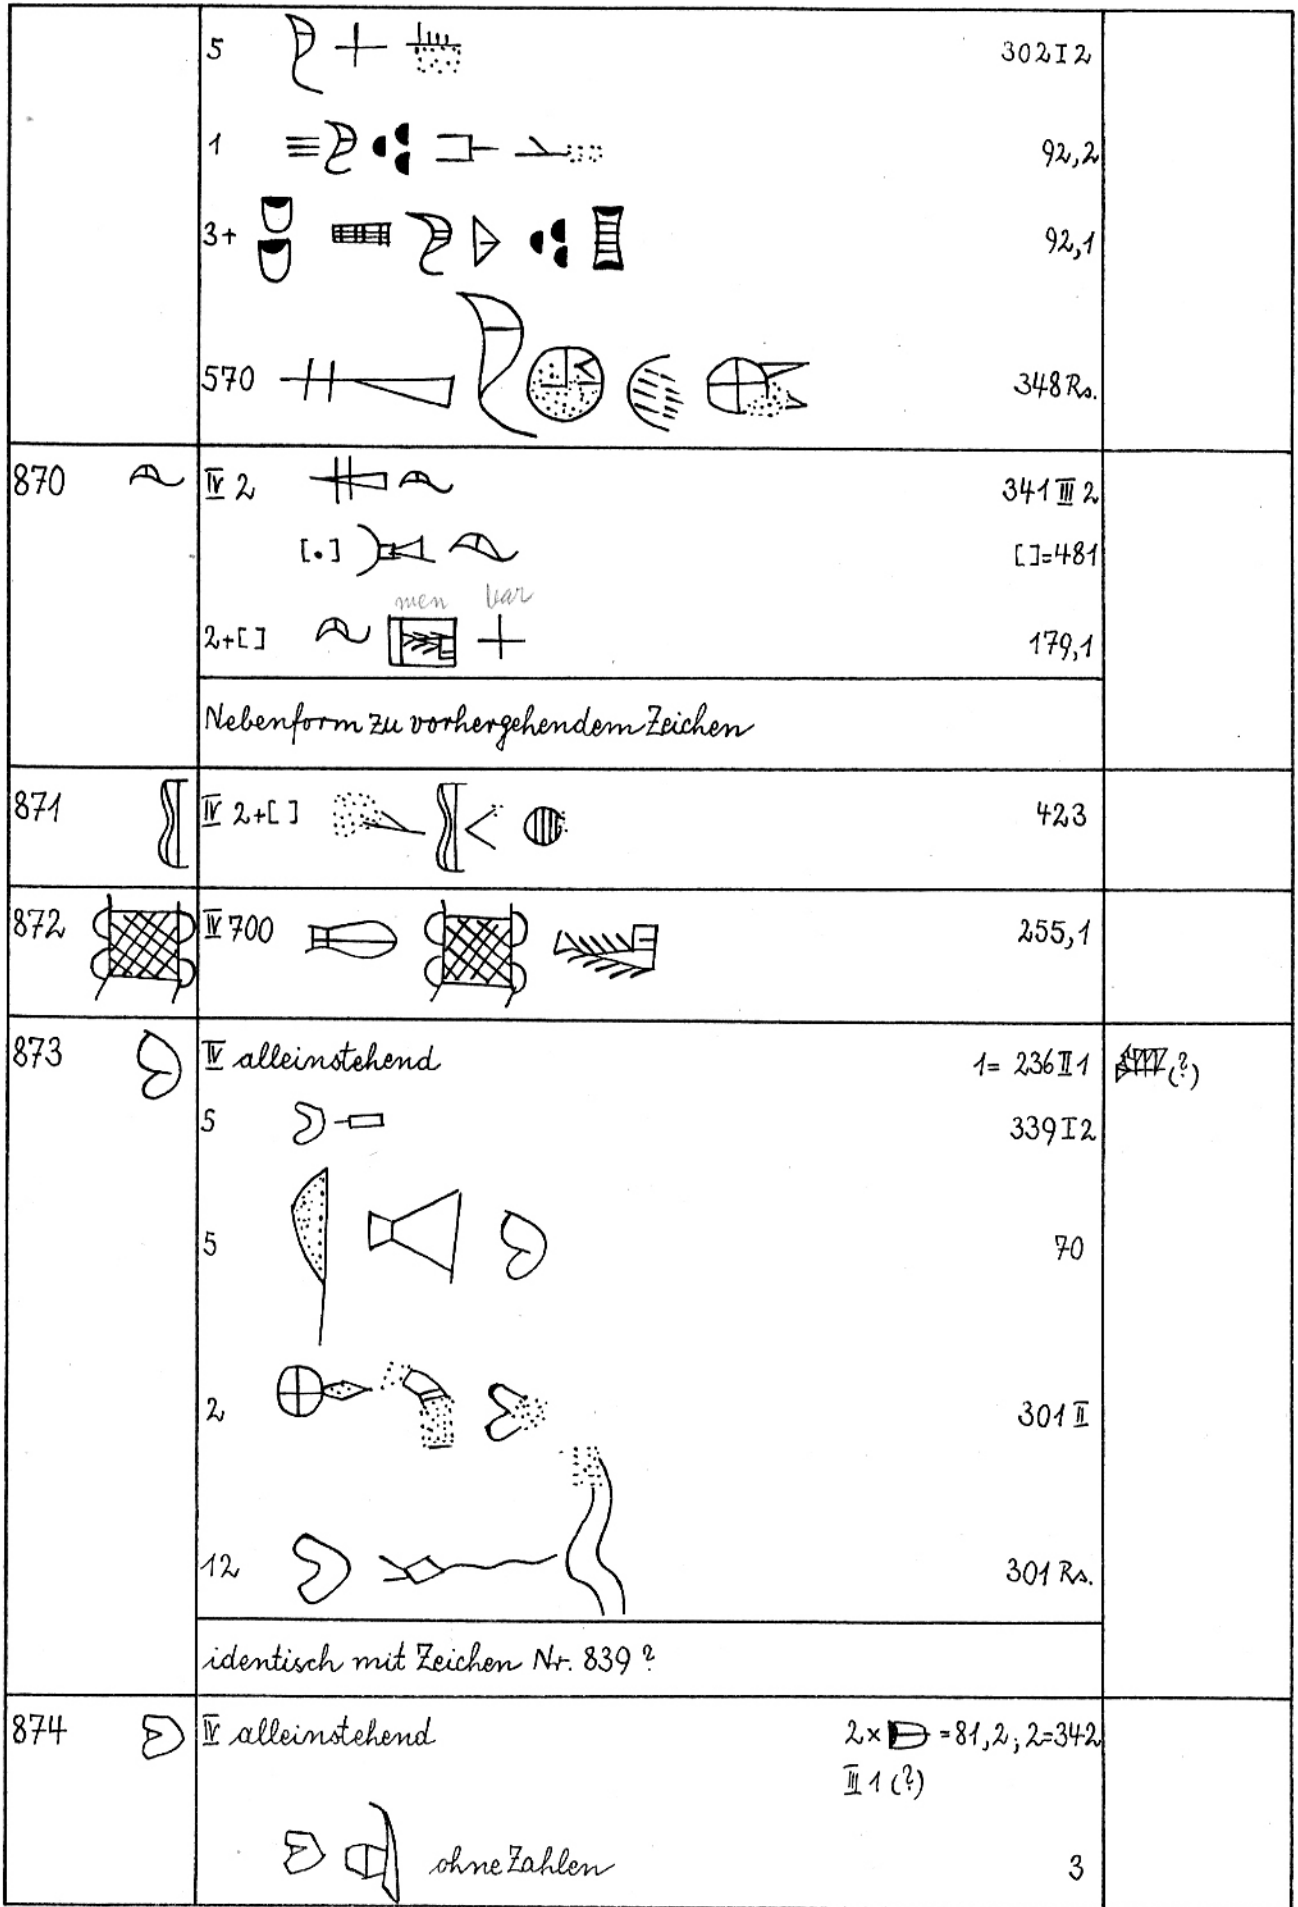 5 302 I 2
1 92,2
3+ 92,1
570 348 Rs.
870 IV 2 341 III 2
[.] []=481
men bar
2+[] 179,1
Nebenform zu vorhergehendem Zeichen
871 IV 2+[] 423
872 IV 700 255,1
873 IV alleinstehend 1= 236 II 1 (?)
5 339 I 2
5 70
2 301 II
12 301 Rs.
identisch mit Zeichen Nr. 839 ?
874 IV alleinstehend 2× =81,2; 2=342
III 1 (?)
ohne Zahlen 3